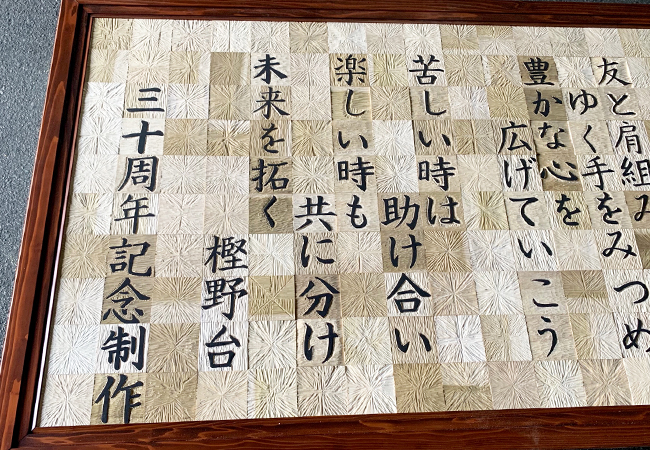 友と肩組み
ゆく手をみつめ
豊かな心を
広げていこう
苦しい時は
助け合い
楽しい時も
共に分け
未来を拓く
樫野台
三十周年記念制作